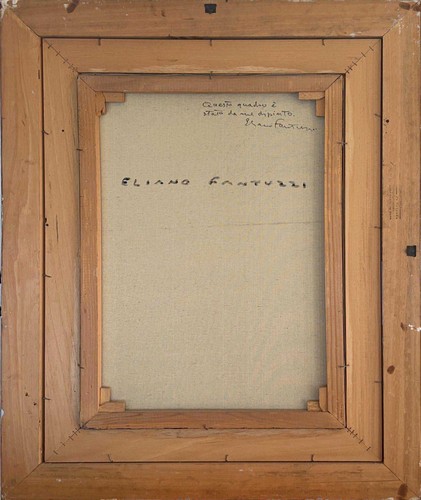 Questo quadro è
stato da me dipinto.
Eliano Fantuzzi
ELIANO FANTUZZI